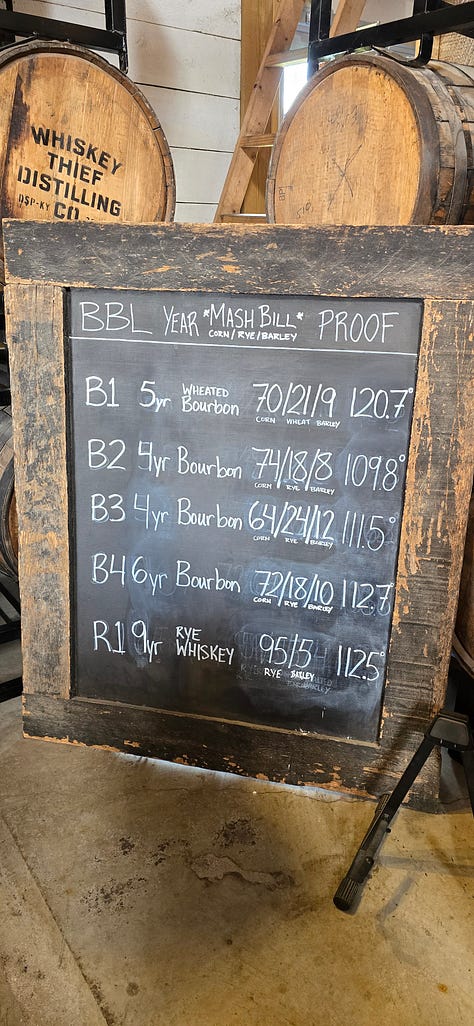 WHISKEY
THIEF
DISTILLING
CO.
DSP-KY
BBL YEAR *MASH BILL* PROOF
CORN/RYE/BARLEY
B1 5yr WHEATED Bourbon 70/21/9 120.7°
CORN WHEAT BARLEY
B2 4yr Bourbon 74/18/8 109.8°
CORN RYE BARLEY
B3 4yr Bourbon 64/24/12 111.5°
CORN RYE BARLEY
B4 6yr Bourbon 72/18/10 112.7
CORN RYE BARLEY
R1 9yr RYE WHISKEY 95/5 112.5°
RYE BARLEY